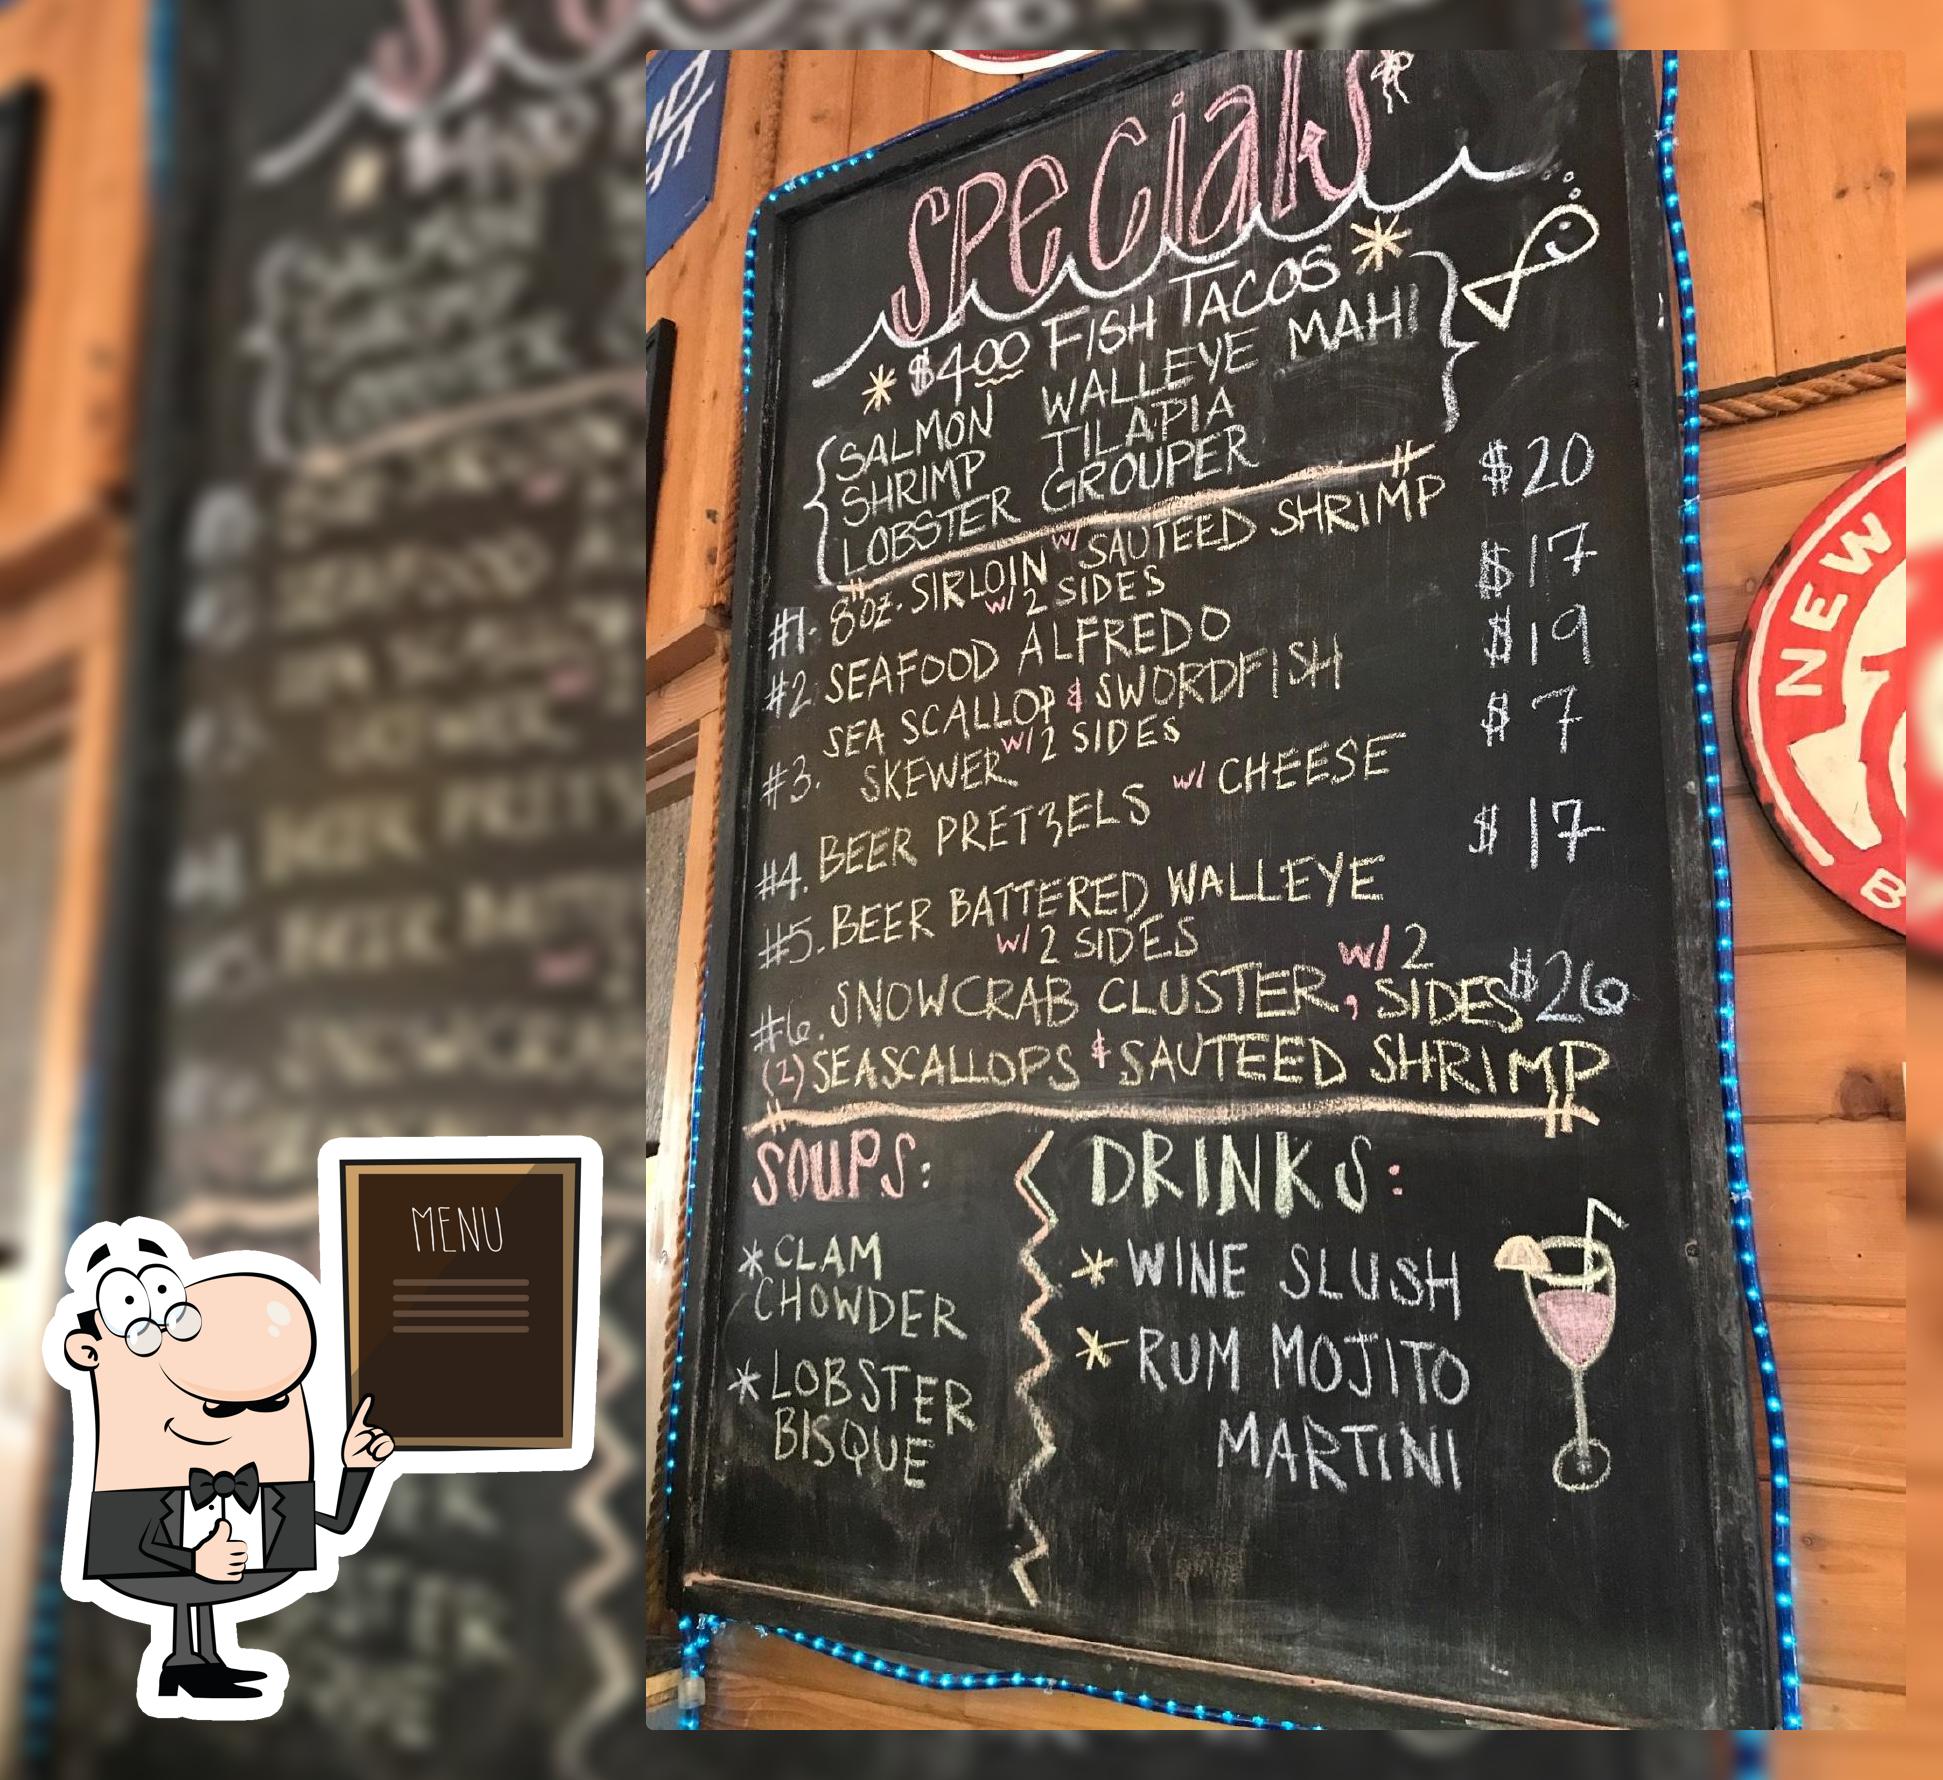 SPECIALS
* $4.00 FISH TACOS *
SALMON WALLEYE MAHI
SHRIMP TILAPIA
LOBSTER GROUPER
#1. 8 oz. SIRLOIN w/ SAUTEED SHRIMP $20
w/ 2 SIDES
#2. SEAFOOD ALFREDO $17
#3. SEA SCALLOP & SWORDFISH $19
SKEWER w/ 2 SIDES
#4. BEER PRETZELS w/ CHEESE $7
#5. BEER BATTERED WALLEYE $17
w/ 2 SIDES
#6. SNOWCRAB CLUSTER, w/ 2 SIDES $26
(2) SEASCALLOPS & SAUTEED SHRIMP
SOUPS:
* CLAM
CHOWDER
* LOBSTER
BISQUE
DRINKS:
* WINE SLUSH
* RUM MOJITO
MARTINI
NEW
MENU